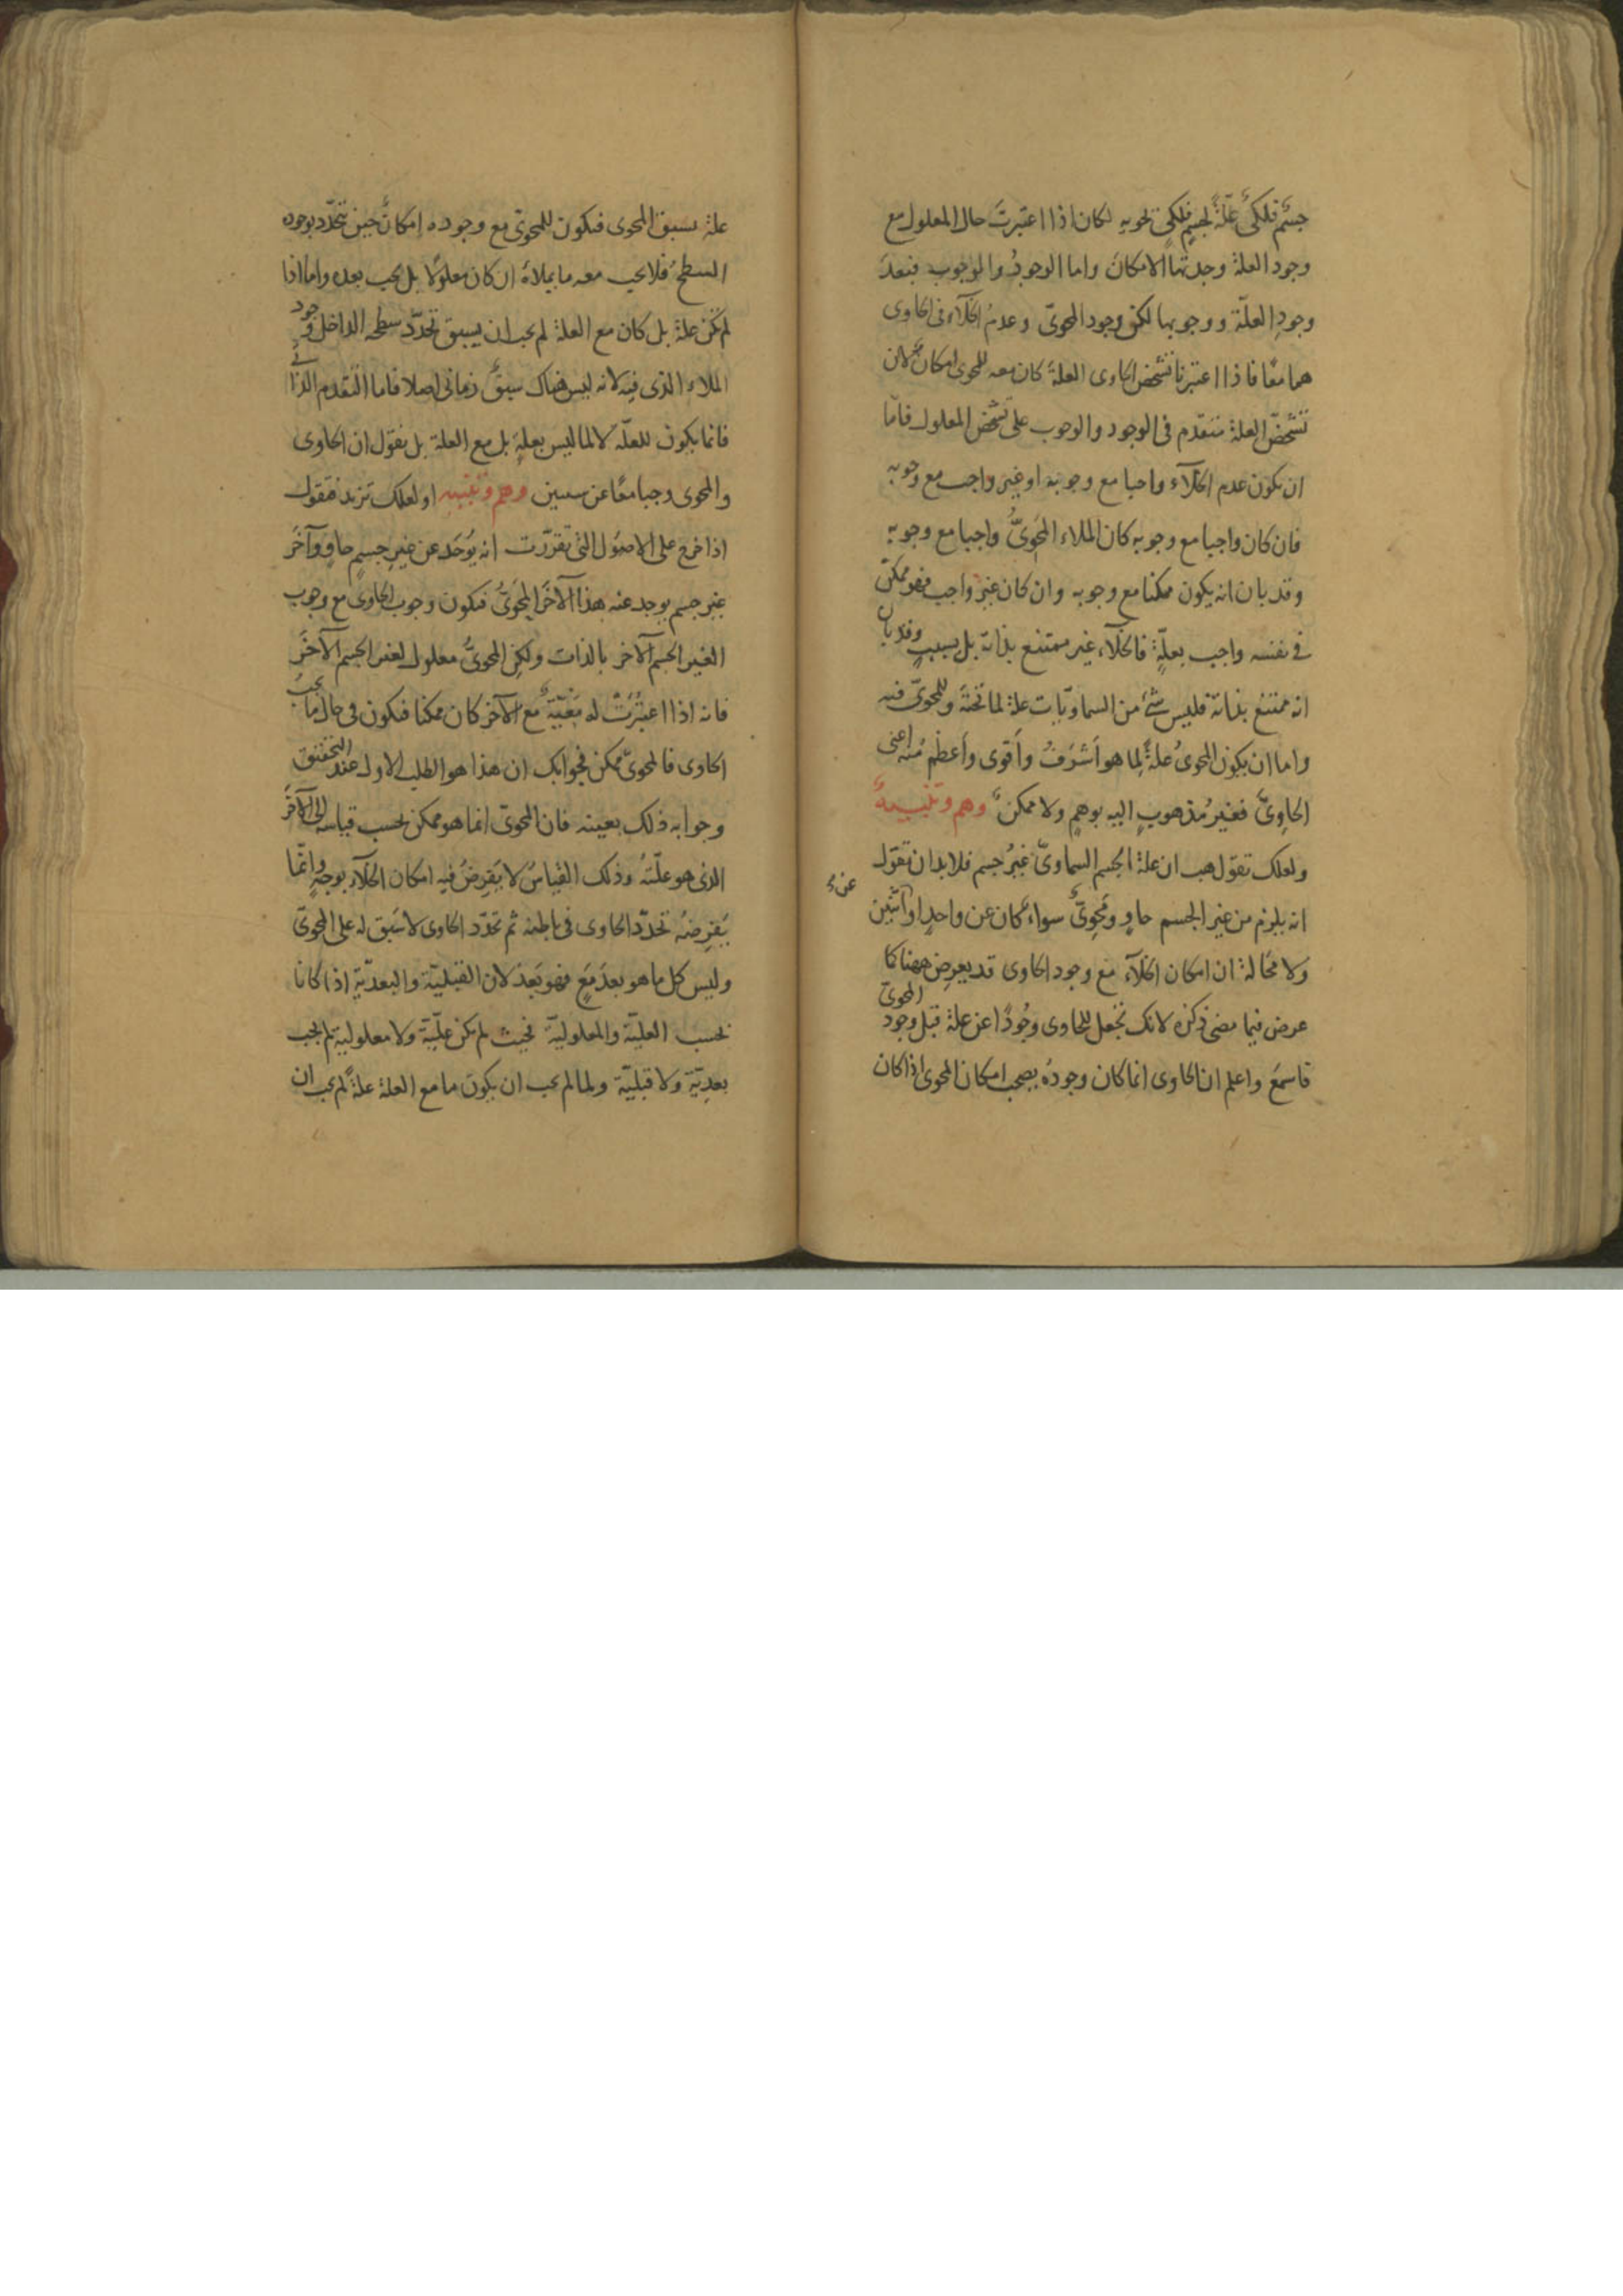 جسم فلكى علّة لجسم فلكى تحويه لكان اذا اعتبرت حال المعلول مع
وجود العلة وجدتها الامكان واما الوجود والوجوب فبعد
وجود العلّة ووجوبها لكن وجود المحوىّ وعدم الخلآء فى الحاوى
هما معًا فاذا اعتبرنا تشخص الحاوى العلة كان معه للمحوى امكان لان
تشخّص العلة متقدّم فى الوجود والوجوب على تشخّص المعلول فامّا
ان يكون عدم الخلآء واجبا مع وجوبه او غير واجب مع وجوبه
فان كان واجبا مع وجوبه كان الملاء المحَوىُّ واجبا مع وجوبه
وقد بان انه يكون ممكنا مع وجوبه وان كان غير واجب فهو ممكن
فى نفسه واجب بعلّةٍ فالخلآء غير ممتنع بذاته بل بسببٍ وقد بان
انه ممتنع بذاته فليس شئ من السماويّات علة لما تحتَه وللمحوىّ فيه
واما ان يكون المحوىُ علةً لِما هو اَشرَفُ وأَقوى وأَعظم مُنه اعنى
الحاوِىَّ فغيرُ مُذهوبٍ اليه بوهمٍ ولا ممكن وهم وتنبيهٌ
ولعلك تقول هب ان علة الجسم السماوىّ غيرُ جسم فلابد ان تقول
انه يلزم من غير الجسم حاوٍ ومَحوِىٌّ سواء كان عن واحدٍ او اثنين
عن
ولا مَحَالة ان امكان الخلآء مع وجود الحاوى قد يعرِض ههنا كما
عرض فيما مضى ذكره لانك تجعل للحاوى وجُودًا عن علة قبل وجود المحوىّ
فاسمعَ واعلم ان الحاوى انما كان وجودُه يصحب امكان المحوى اذا كان
علة يسبق المحوى فيكون للمحوىّ مع وجوده امكانٌ حين يتحدّد بوجوده
السطحُ فلا يجب معه ما يملاهُ ان كان معلولًا بل يجب بعده واما اذا
لم تكن علة بل كان مع العلة لم يجب ان يسبق تحدّد سطحه الداخل وجود
الملاء الذى فيه لانه ليس هناك سبقٌ زمانى اصلا فاما التقدم الذاتى
فانما يكون للعلّة لا لما ليس بعلةٍ بل مع العلة بل نقول ان الحاوى
والمحوى وجبا معًا عن سببين وهم وتنبيه او لعلك تزيد فتقول
اذا خرج على الاصول التى تقرّرت انه يُوجَد عن غير جسمٍ حاوٍ وآخَر
غير جسم يوجد عنه هذا الآخر المحَوىُّ فيكون وجوب الحاوى مع وجوب
الغير الجسم الآخر بالذات ولكن المحوىُّ معلول لغير الجسم الآخَر
فانه اذا اعتُبرتْ له مَعِيَّةٌ مع الآخر كان ممكنا فيكون فى حال ما يجبُ
الحاوى فالمحوىّ ممكن فجوابك ان هذا هو الطلب الاول عند التحقيق
وجوابه ذلك بعينه فان المحوىّ انما هو ممكن بحسب قياسه الى الآخَر
الذى هو علّته وذلك القياسُ لا يَفرِضُ فيه امكان الخلآء بوجهٍ وانّما
يَفرِضهُ تحدّد الحاوى فى باطنه ثم تحدّد الحاوى لا سَبق له على المحوىّ
وليس كل ما هو بعدَ مَعٍ فهو بَعدُ لان القبليّة والبعديّة اذا كانا
بحسب العليّة والمعلوليّة فحيث لم يكن علّيّة ولا معلوليّة لم يجب
بعديّة ولا قبليّة ولما لم يجب ان يكون ما مع العلة علةً لم يجب ان